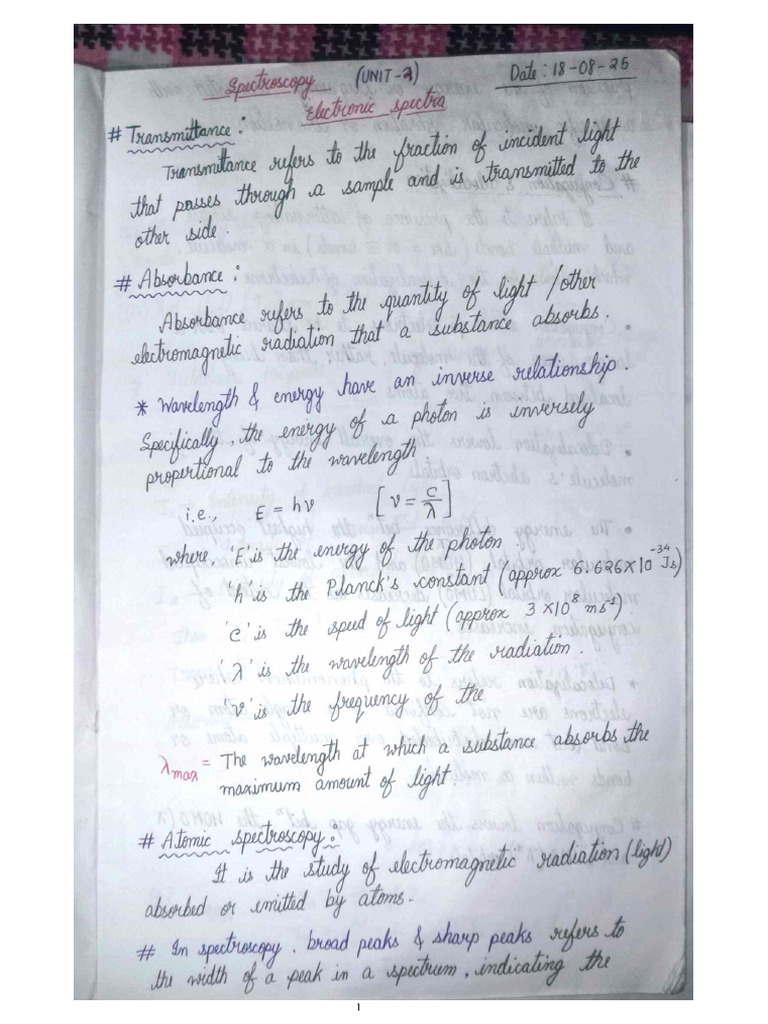 Spectroscopy (UNIT-2) Date: 18-08-25
Electronic spectra
# Transmittance:
Transmittance refers to the fraction of incident light
that passes through a sample and is transmitted to the
other side.
# Absorbance:
Absorbance refers to the quantity of light/other
electromagnetic radiation that a substance absorbs.
* Wavelength & energy have an inverse relationship.
Specifically, the energy of a photon is inversely
propertional to the wavelength.
i.e., E = hν [ν = c/λ]
where 'E' is the energy of the photon.
'h' is the Planck's constant (approx 6.626×10⁻³⁴ Js)
'c' is the speed of light (approx 3×10⁸ ms⁻¹).
'λ' is the wavelength of the radiation.
'ν' is the frequency of the
λmax = The wavelength at which a substance absorbs the
maximum amount of light.
# Atomic spectroscopy:
It is the study of electromagnetic radiation (light)
absorbed or emitted by atoms.
# In spectroscopy, broad peaks & sharp peaks refers to
the width of a peak in a spectrum, indicating the
1